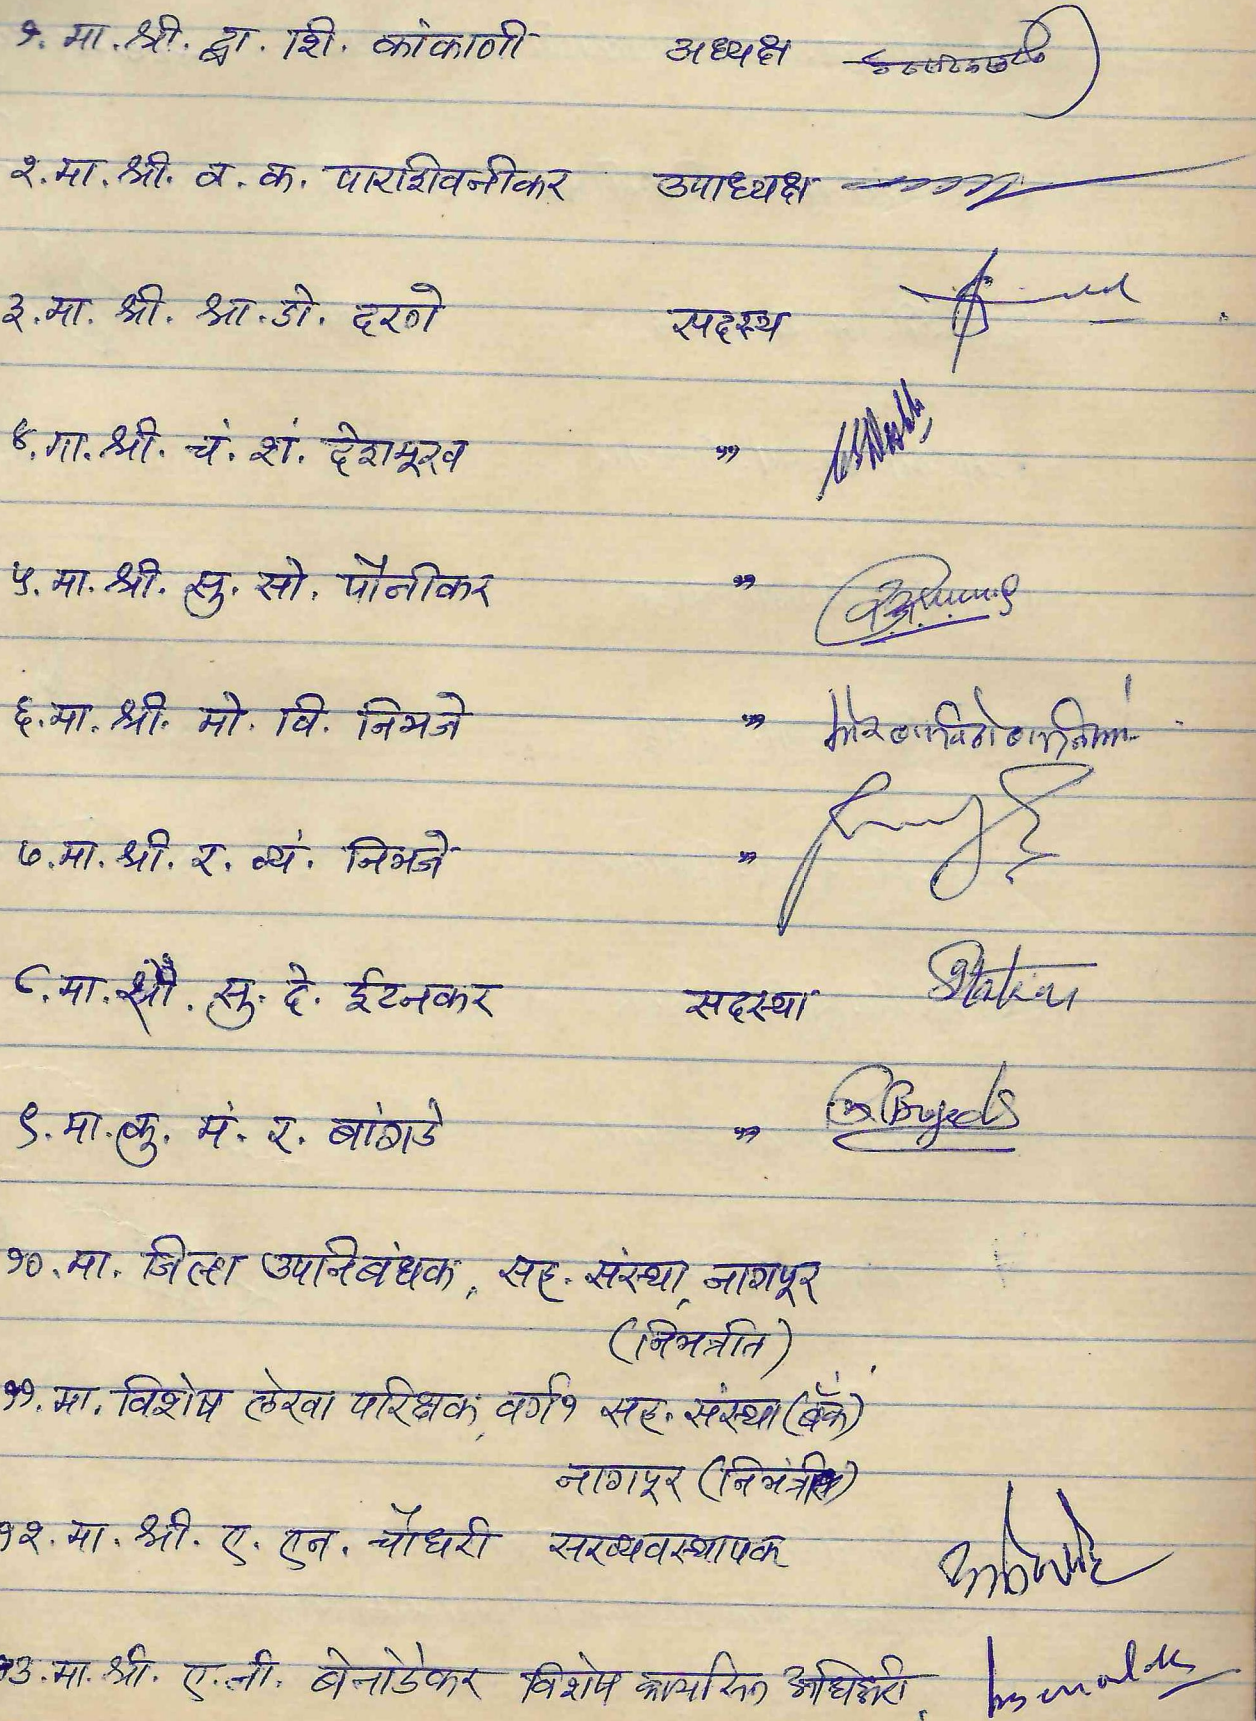 १. मा. श्री. द्वा. शि. काकाणी अध्यक्ष
२. मा. श्री. व. क. पाराशिवनीकर उपाध्यक्ष
३. मा. श्री. श्रा. डो. दरणे सदस्य
४. मा. श्री. चं. शं. देशमूख "
५. मा. श्री. सु. सो. पौनीकर "
६. मा. श्री. मो. वि. निमजे "
७. मा. श्री. र. व्यं. निमजे "
८. मा. सौ. सु. दे. ईटनकर सदस्या
९. मा. कु. मं. र. बांगडे "
१०. मा. जिल्हा उपनिबंधक, सह. संस्था, नागपूर
(निमंत्रीत)
११. मा. विशेष लेखा परिक्षक, वर्ग १ सह. संस्था (बँक)
नागपूर (निमंत्रीत)
१२. मा. श्री. ए. एन. चौधरी सरव्यवस्थापक
१३. मा. श्री. ए. नी. बेनोडेकर विशेष कार्यासन अधिकारी